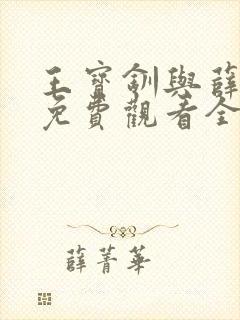 王寶釧與薛
免費觀看全
薛菁華